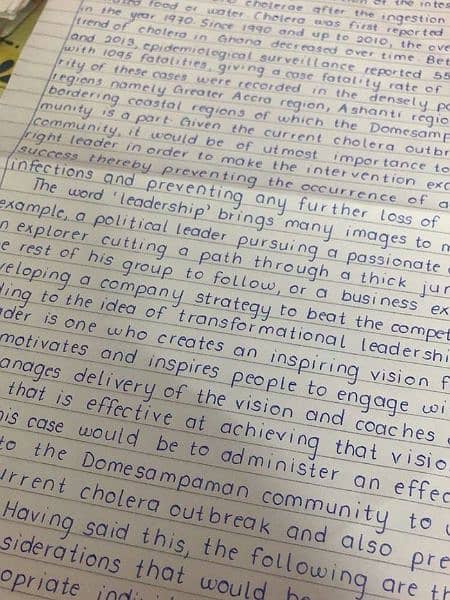 cholerae after the ingestion
food or water Cholera was first reported
in the year 1970. Since 1990 and up to 2010, the ove
trend of cholera in Ghana decreased over time. Bet
and 2015, epidemiological surveillance reported 55
with 1095 fatalities, giving a case fatality rate of
rity of these cases were recorded in the densely po
regions namely Greater Accra region, Ashanti regio
bordering coastal regions of which the Domesamp
munity is a part. Given the current cholera outbr
community, it would be of utmost importance to
right leader in order to make the intervention exc
success thereby preventing the occurrence of a
infections and preventing any further loss of
The word 'leadership' brings many images to m
example, a political leader pursuing a passionate
n explorer cutting a path through a thick jun
e rest of his group to follow, or a business ex
veloping a company strategy to beat the compet
ding to the idea of transformational leadershi
ader is one who creates an inspiring vision f
motivates and inspires people to engage wi
anages delivery of the vision and coaches
that is effective at achieving that visio
his case would be to administer an effec
to the Domesampaman community to
urrent cholera outbreak and also pre
Having said this, the following are th
siderations that would be
opriate indivi